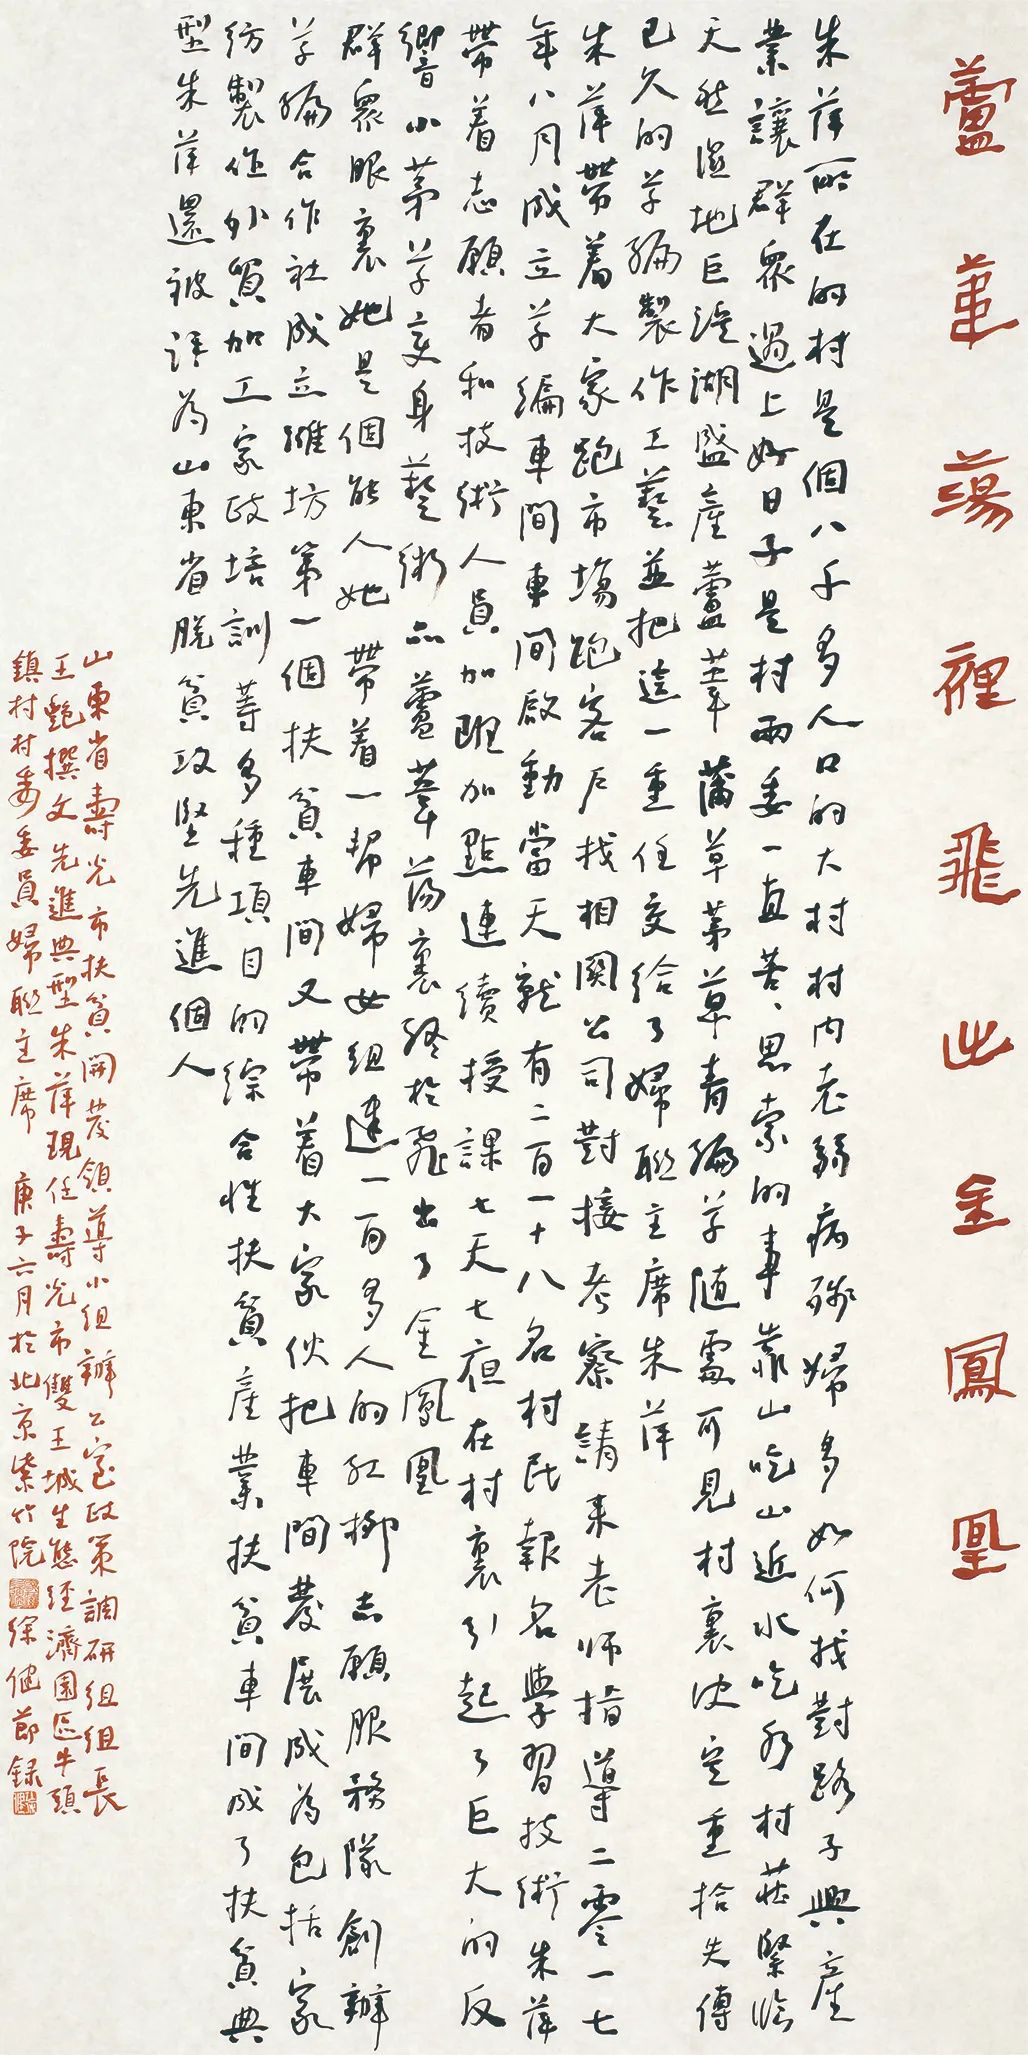 蘆葦蕩裡飛出金鳳凰
朱萍所在的村是個八千多人口的大村村內老弱病殘婦多多如何找對路子興產
業讓群眾過上好日子是村兩委一直苦苦思索的事靠山吃山近水吃水村莊緊臨
天然濕地巨淀湖盛產蘆葦蒲草茅草青編草隨處可見村裏決定重拾失傳
已久的草編製作工藝並把這一重任交給了婦聯主席朱萍
朱萍帶着大家跑市場跑客户找相關公司對接考察請来老师指導二零一七
年八月成立草编車間車间啟動當天就有二百一十八名村民報名學習技術朱萍
帶着志願者和技術人員加班加點連續授課七天七夜在村裏引起了巨大的反
響小茅草变身藝術品蘆葦荡裏終於飛出了金鳳凰
群眾眼裏她是個能人她帶着一帮婦女组建一百多人的红柳志願服務隊創辦
草编合作社成立濰坊第一個扶貧車間又帶着大家伙把車間發展成為包括家
纺製作外貿加工家政培訓等多種項目的综合性扶貧產業扶貧車间成了扶貧典
型朱萍還被評為山東省脱貧攻堅先進個人
山東省壽光市扶貧開发領導小组辦公室政策調研组组長
王艷撰文先進典型朱萍現任壽光市雙王城生態经濟園區牛頭
鎮村村委委員婦联主席 庚子六月於北京紫竹院 深健節錄